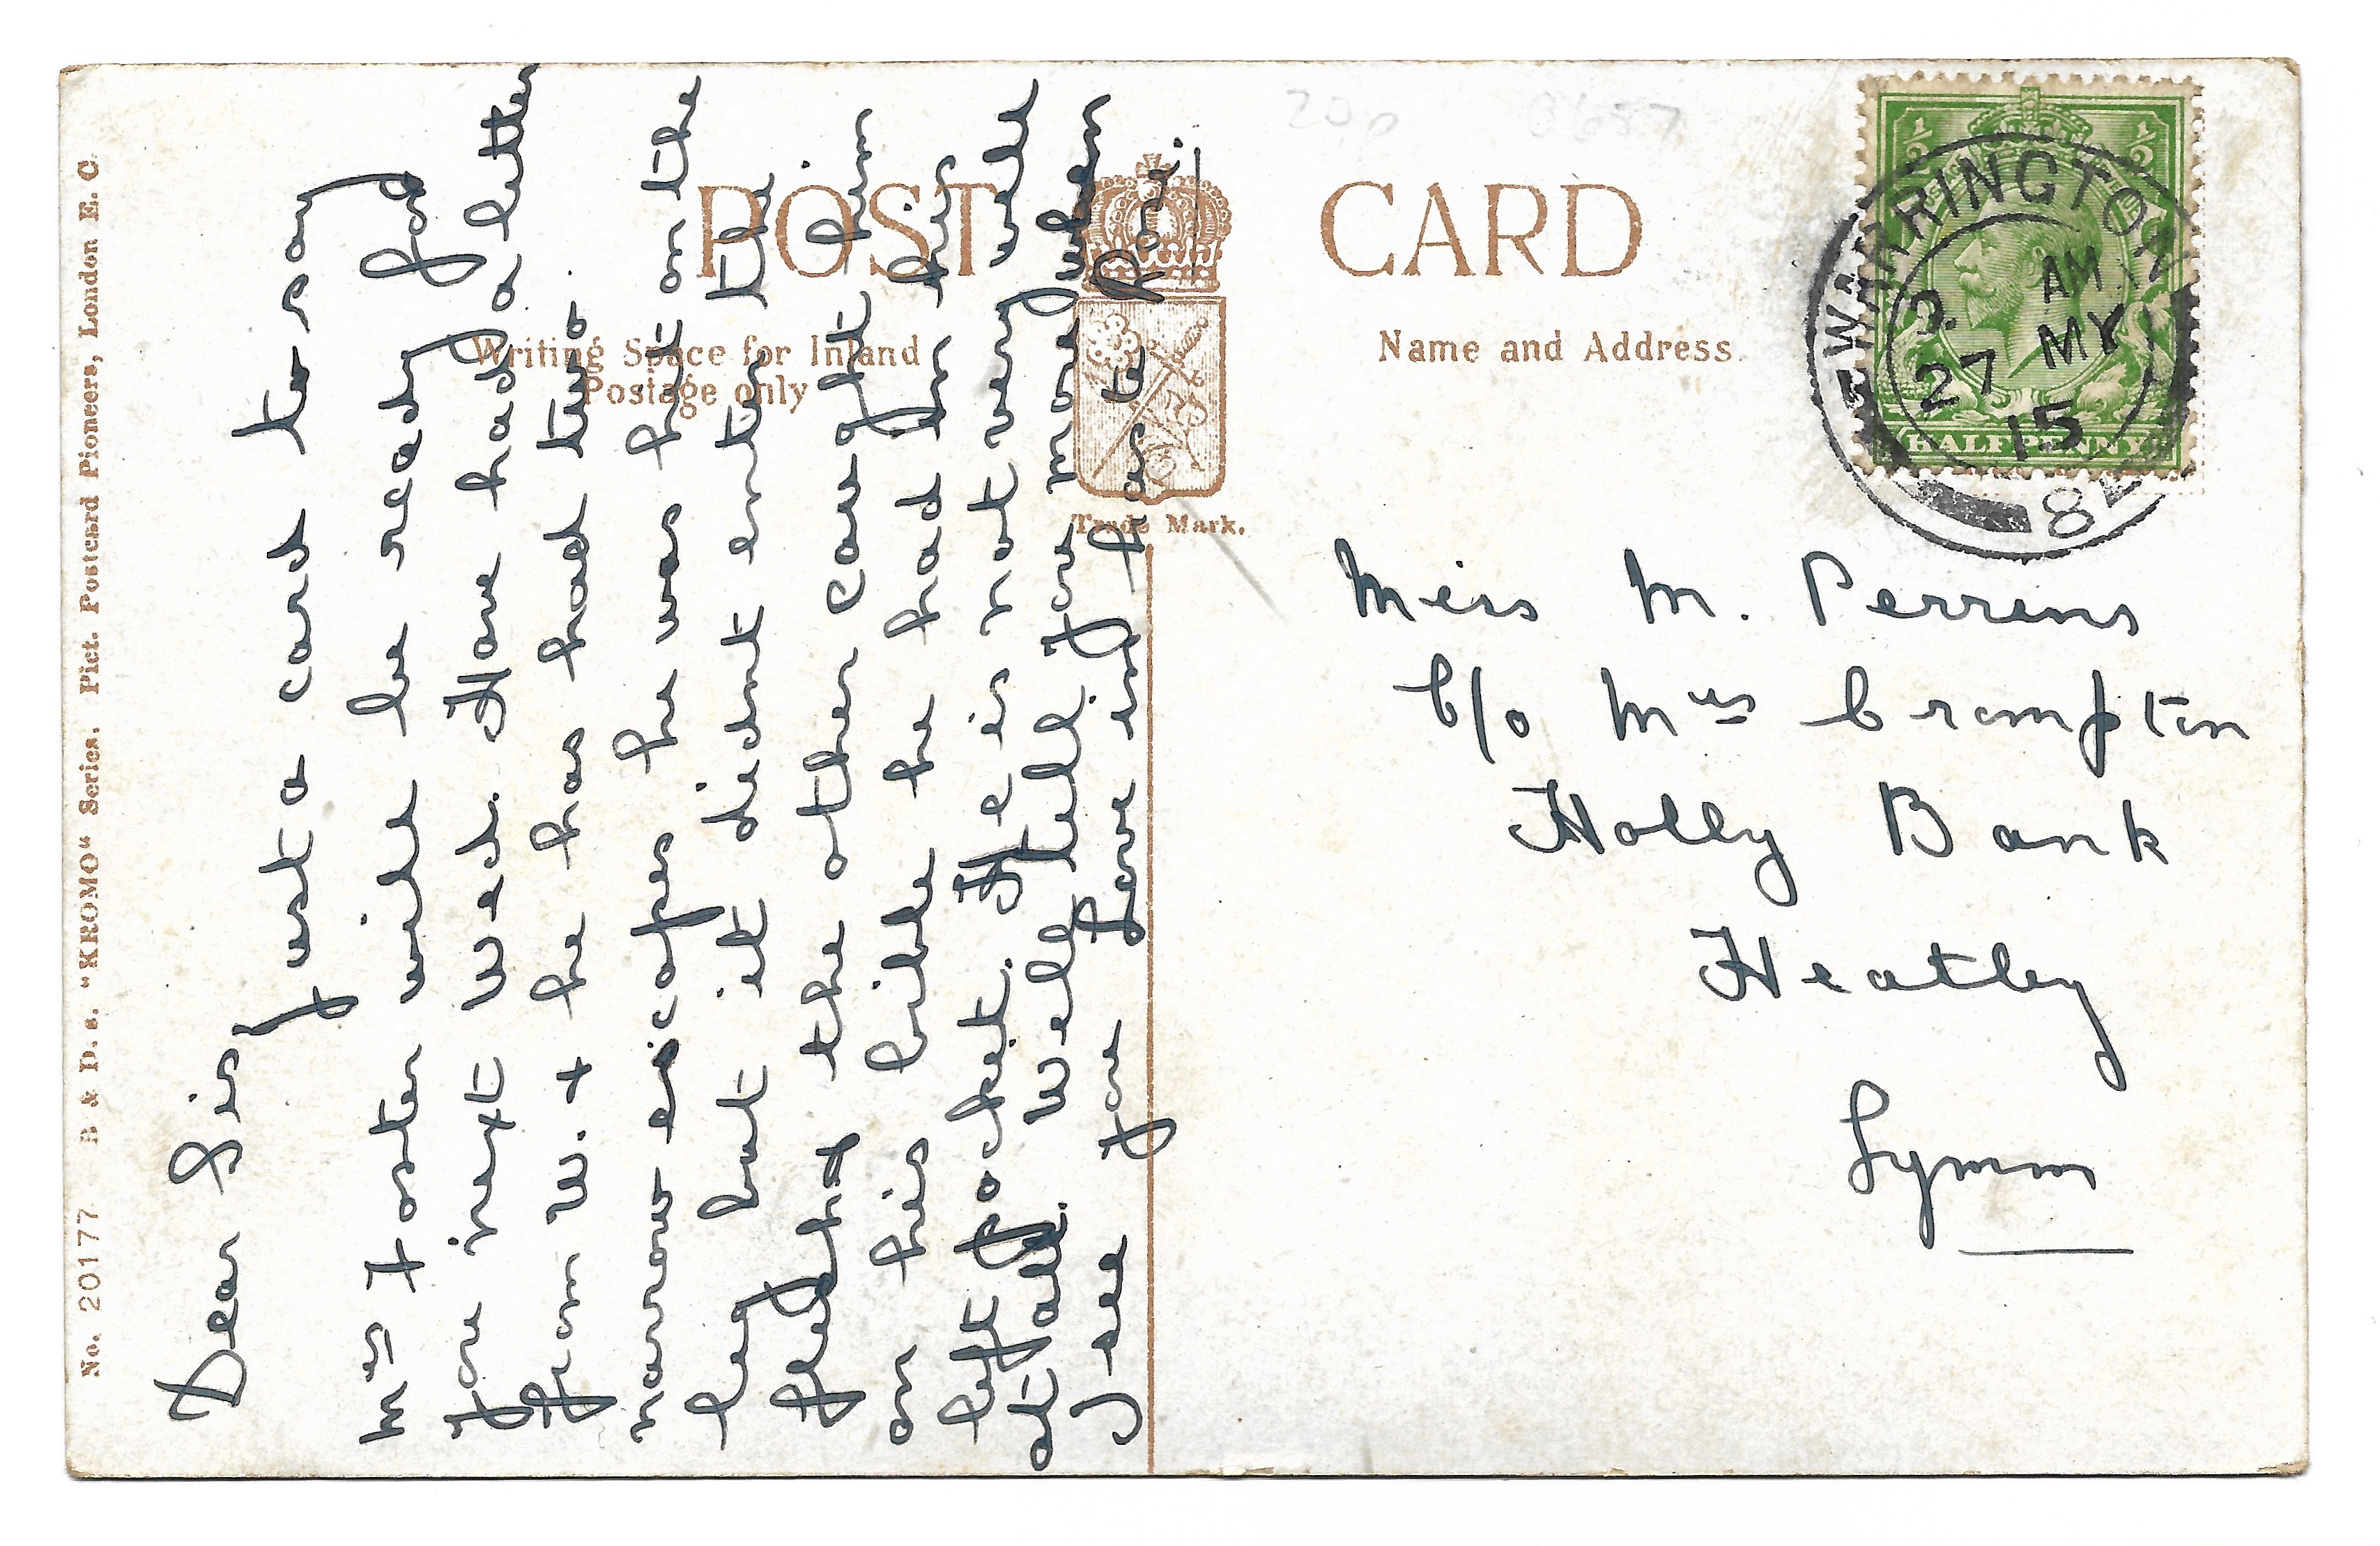 POST CARD
Writing Space for Inland
Postage only
Name and Address.
Trade Mark.
No. 20177 B & D. s. "KROMO" Series. Pict. Postcard Pioneers, London E. C
Dear Sis,
Just a card to say
Mrs Foster will be ready for
you next Wed. Have had a letter
from W. + he has had two
narrow escapes he was hit on the
leg but it didnt enter the
flesh & the other caught him
on his bible he had in his
left pocket. He is not very well
at all. Well tell you more when
I see you Love to Rose.
Miss M. Perrins
C/o Mrs Crompton
Holly Bank
Heatley
Lymm
½ ½
HALFPENNY
WARRINGTON
AM
27 MY
15
20p